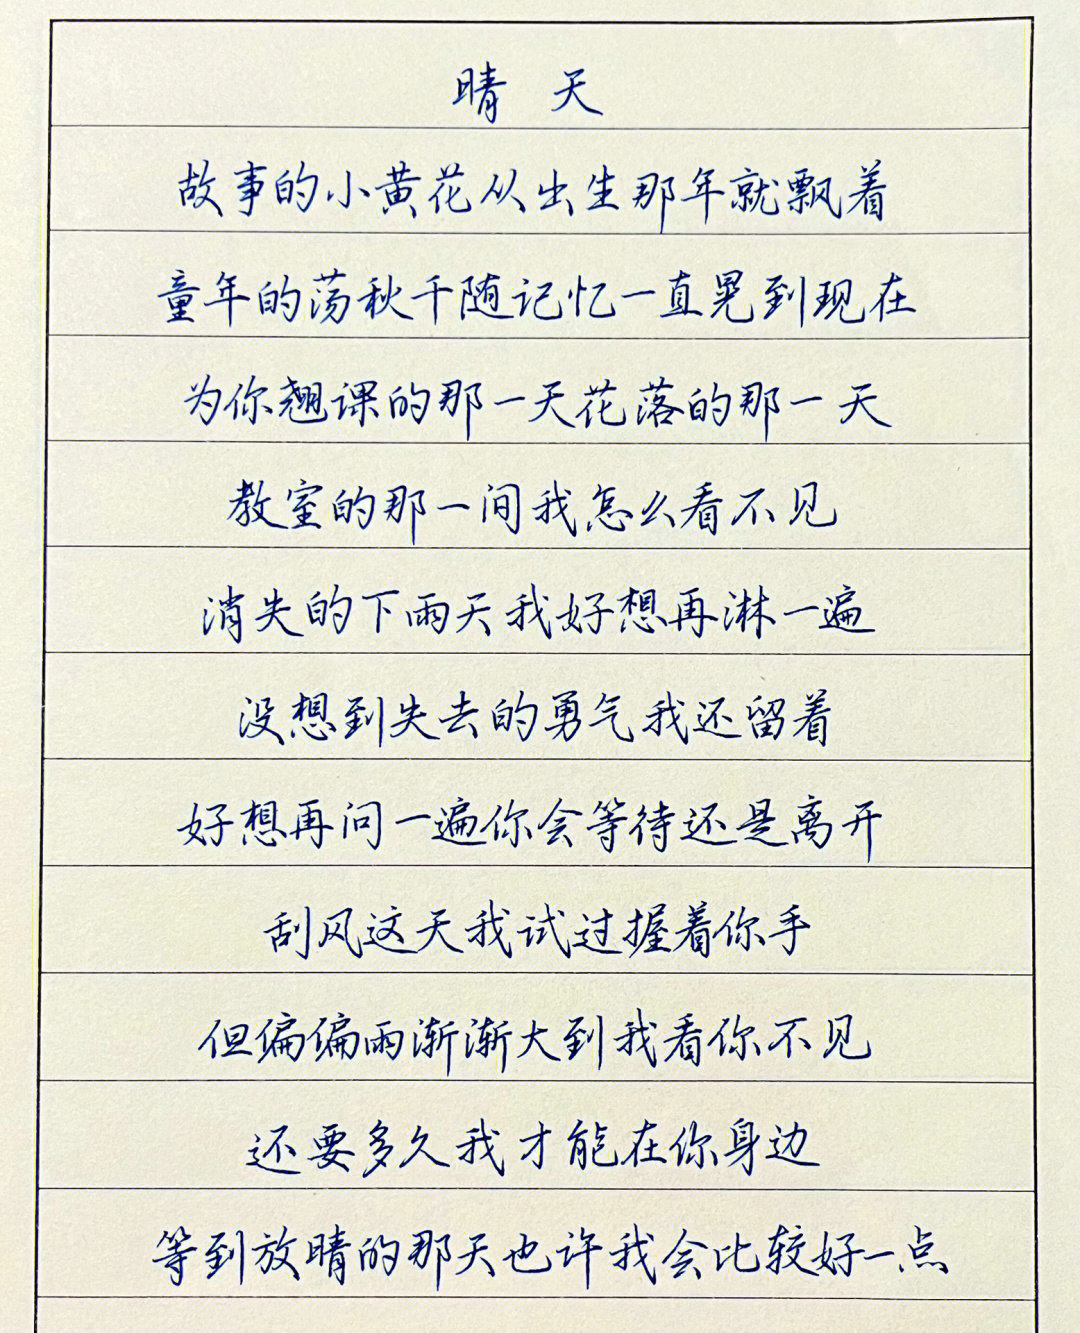 晴天
故事的小黄花从出生那年就飘着
童年的荡秋千随记忆一直晃到现在
为你翘课的那一天花落的那一天
教室的那一间我怎么看不见
消失的下雨天我好想再淋一遍
没想到失去的勇气我还留着
好想再问一遍你会等待还是离开
刮风这天我试过握着你手
但偏偏雨渐渐大到我看你不见
还要多久我才能在你身边
等到放晴的那天也许我会比较好一点